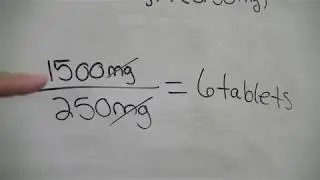 1500mg
250mg = 6tablets